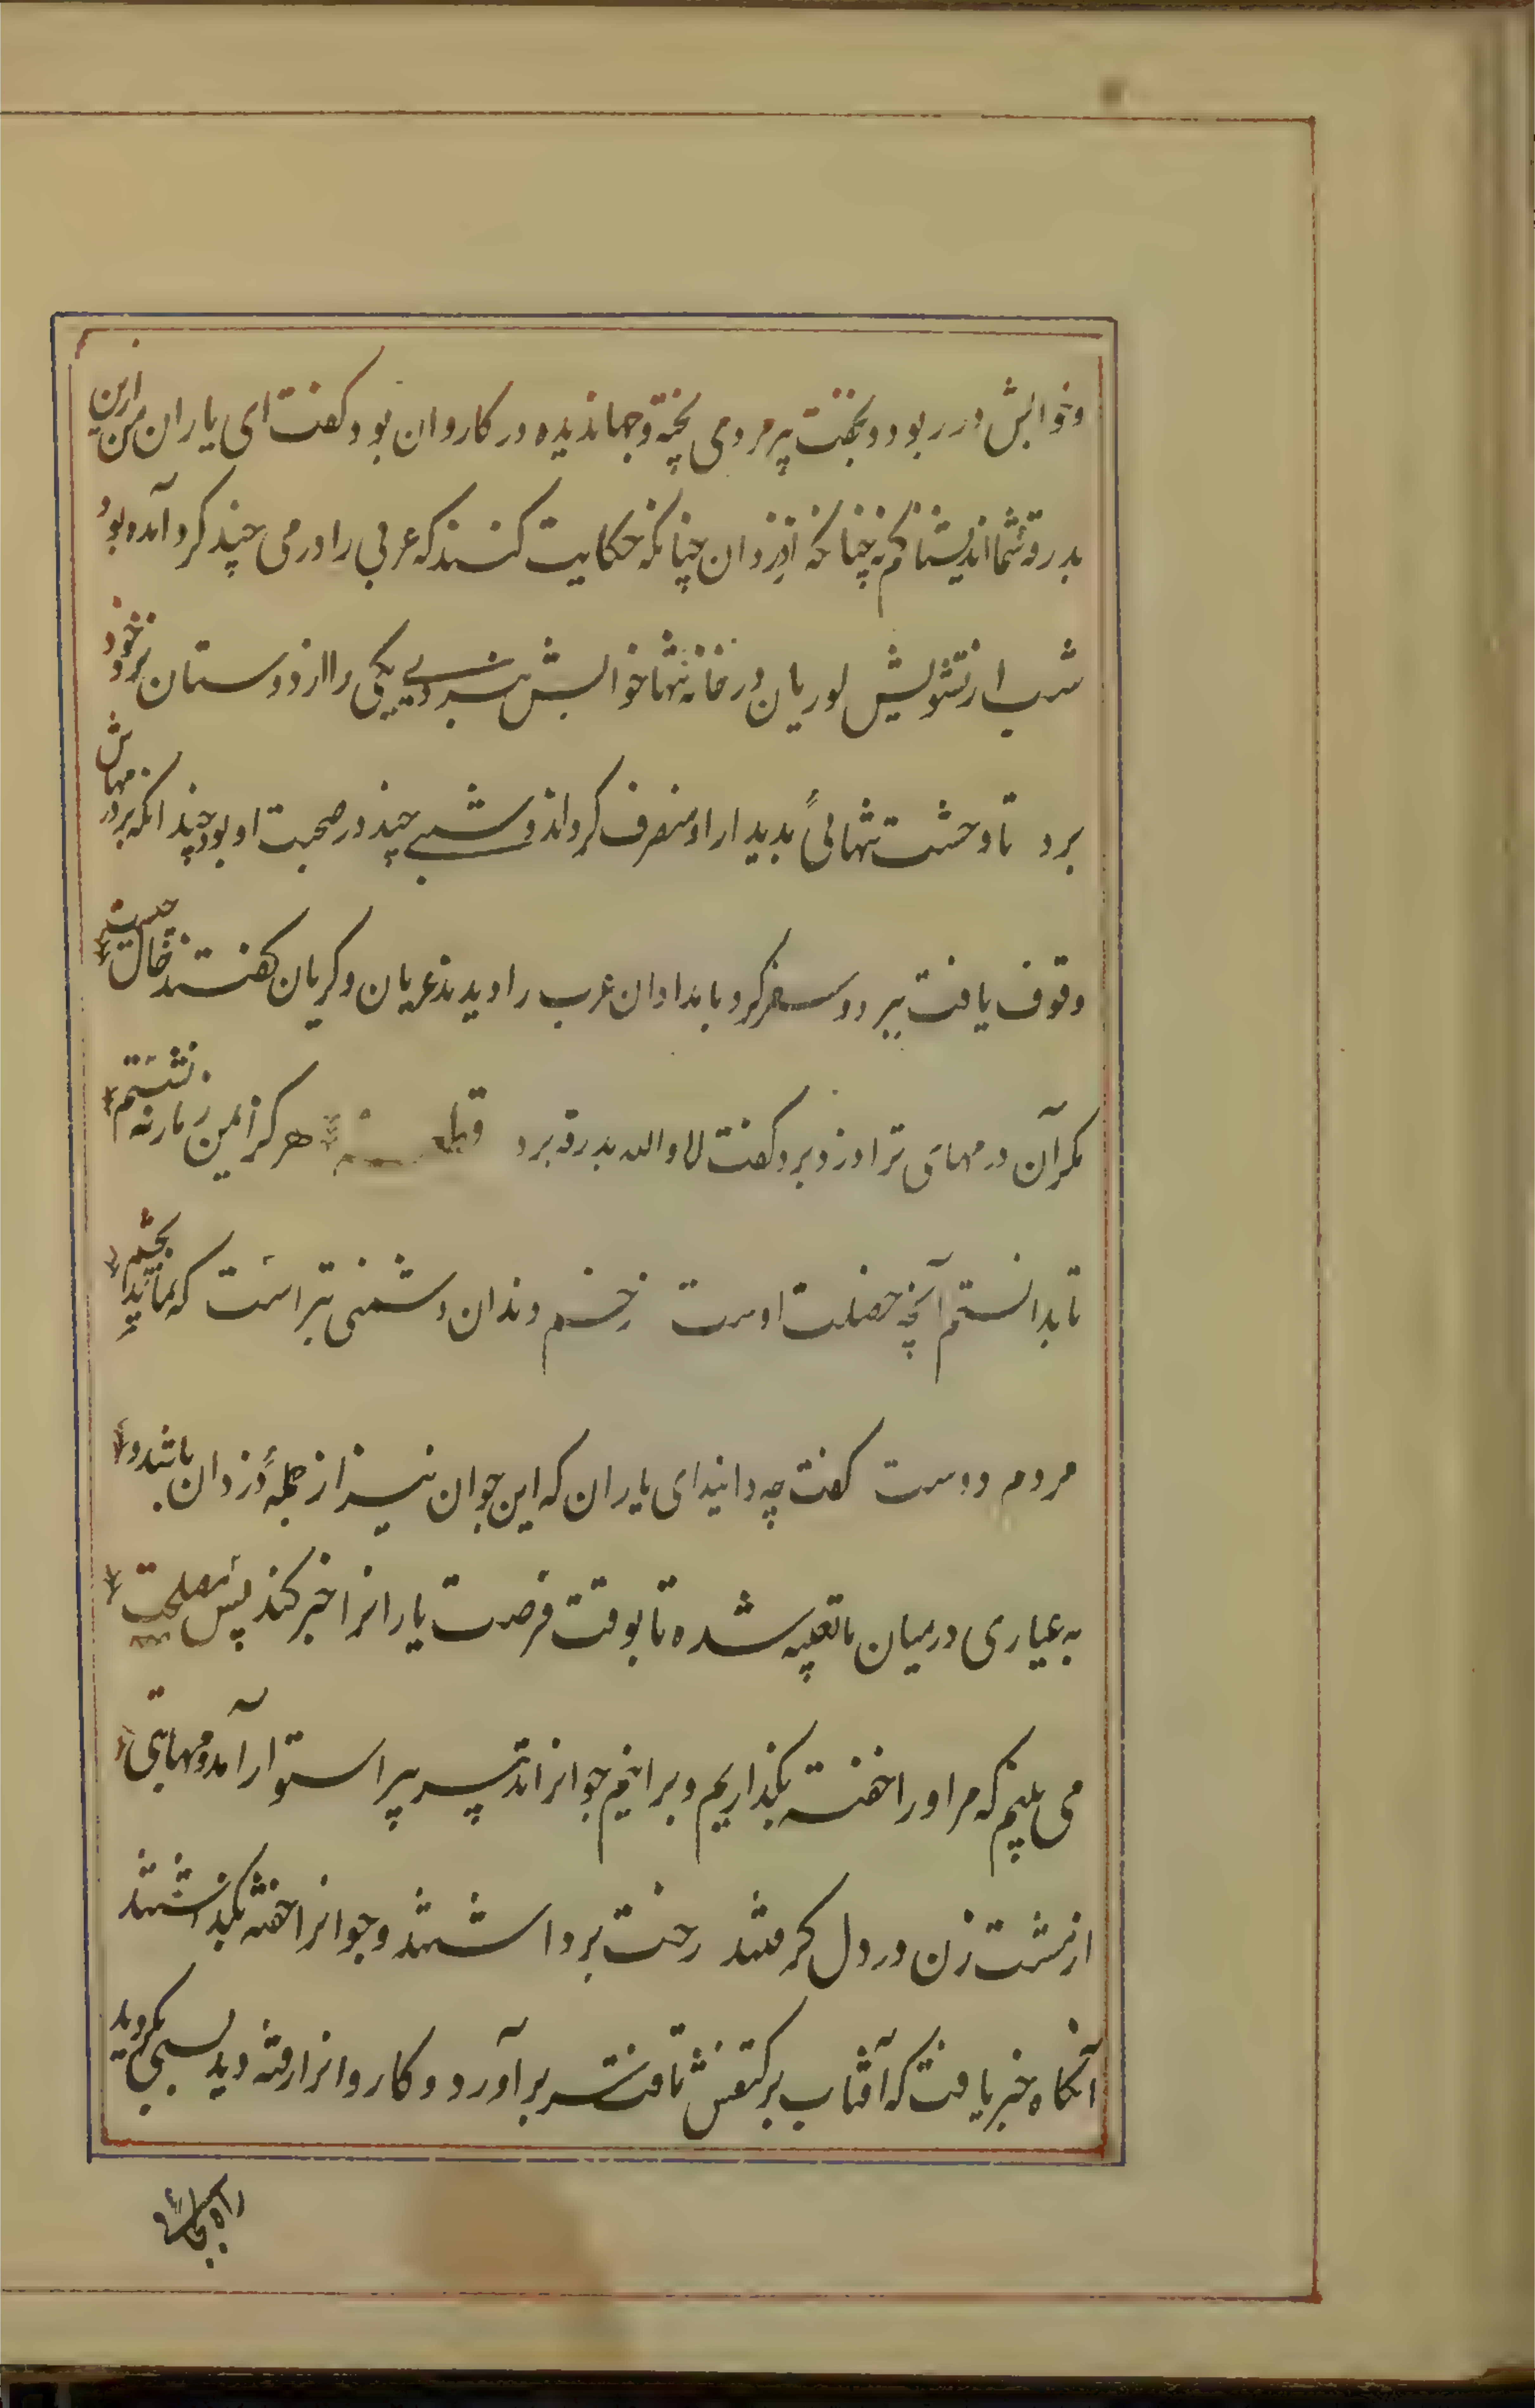 وخوابش در ربود و بخفت پیر مردی پخته و جهاندیده در کاروان بود کفت ای یاران من ازین
بدرقه شما اندیشناکم نه چنانکه از دزدان چنانکه حکایت کنند که عربی را درمی چند کرد آمده بود
شب از تشویش لوریان در خانه تنها خوابش نبردی یکی را از دوستان نزد خود
برد تا وحشت تنهائی بدیدار او منصرف کرداند و شبی چند در صحبت او بود چندانکه بر درمهاش
وقوف یافت ببرد و سفر کرد بامدادان عرب را دیدند عریان و کریان کفتند حال چیست
مکر آن درمهای ترا دزد برد کفت لا والله بدرقه برد قطعه هرکز ایمن ز مار ننشستم
تا بدانستم آنچه خصلت اوست زخم دندان دشمنی بتر است که نماید بچشم
مردم دوست کفت چه دانید ای یاران که این جوان نیز از جملهٔ دزدان باشد و
به عیاری در میان ما تعبیه شده تا بوقت فرصت یارانرا خبر کند پس مصلحت
می بینم که مر او را خفته بکذاریم و برانیم جوانانرا تدبیر پیر استوار آمد و مهابتی
از مشت زن در دل کرفتند رخت برداشتند و جوانرا خفته بکذاشتند
آنکاه خبر یافت که آفتاب بر کتفش تافت سر برآورد و کاروانرا رفته دید بسی بکردید
راه بجائی